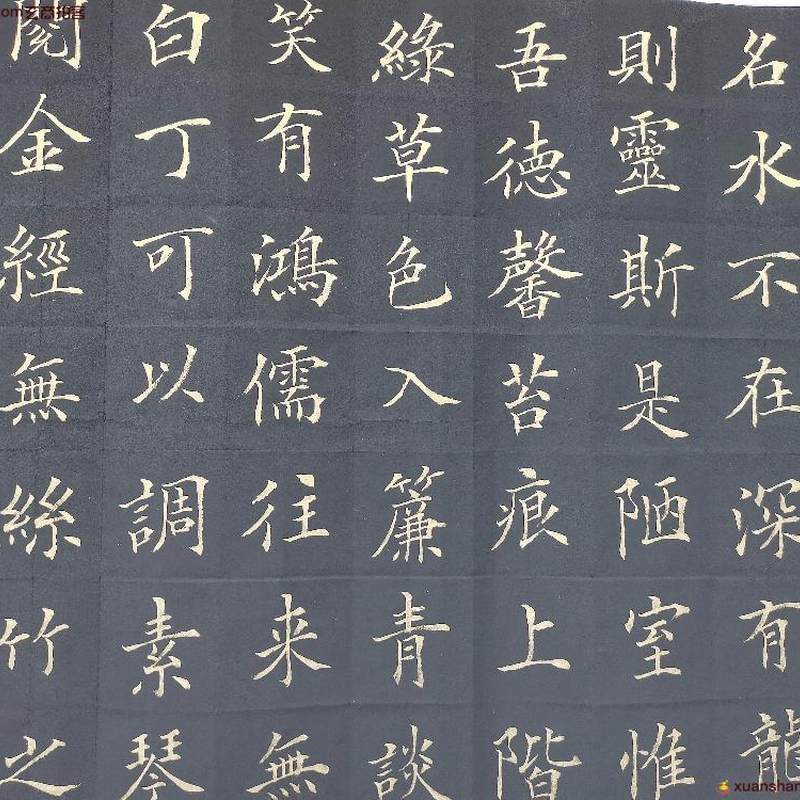 名水不在深有龍
則靈斯是陋室惟
吾德馨苔痕上階
綠草色入簾青談
笑有鴻儒往来無
白丁可以調素琴
閱金經無絲竹之
om玄商拍客
xuanshan